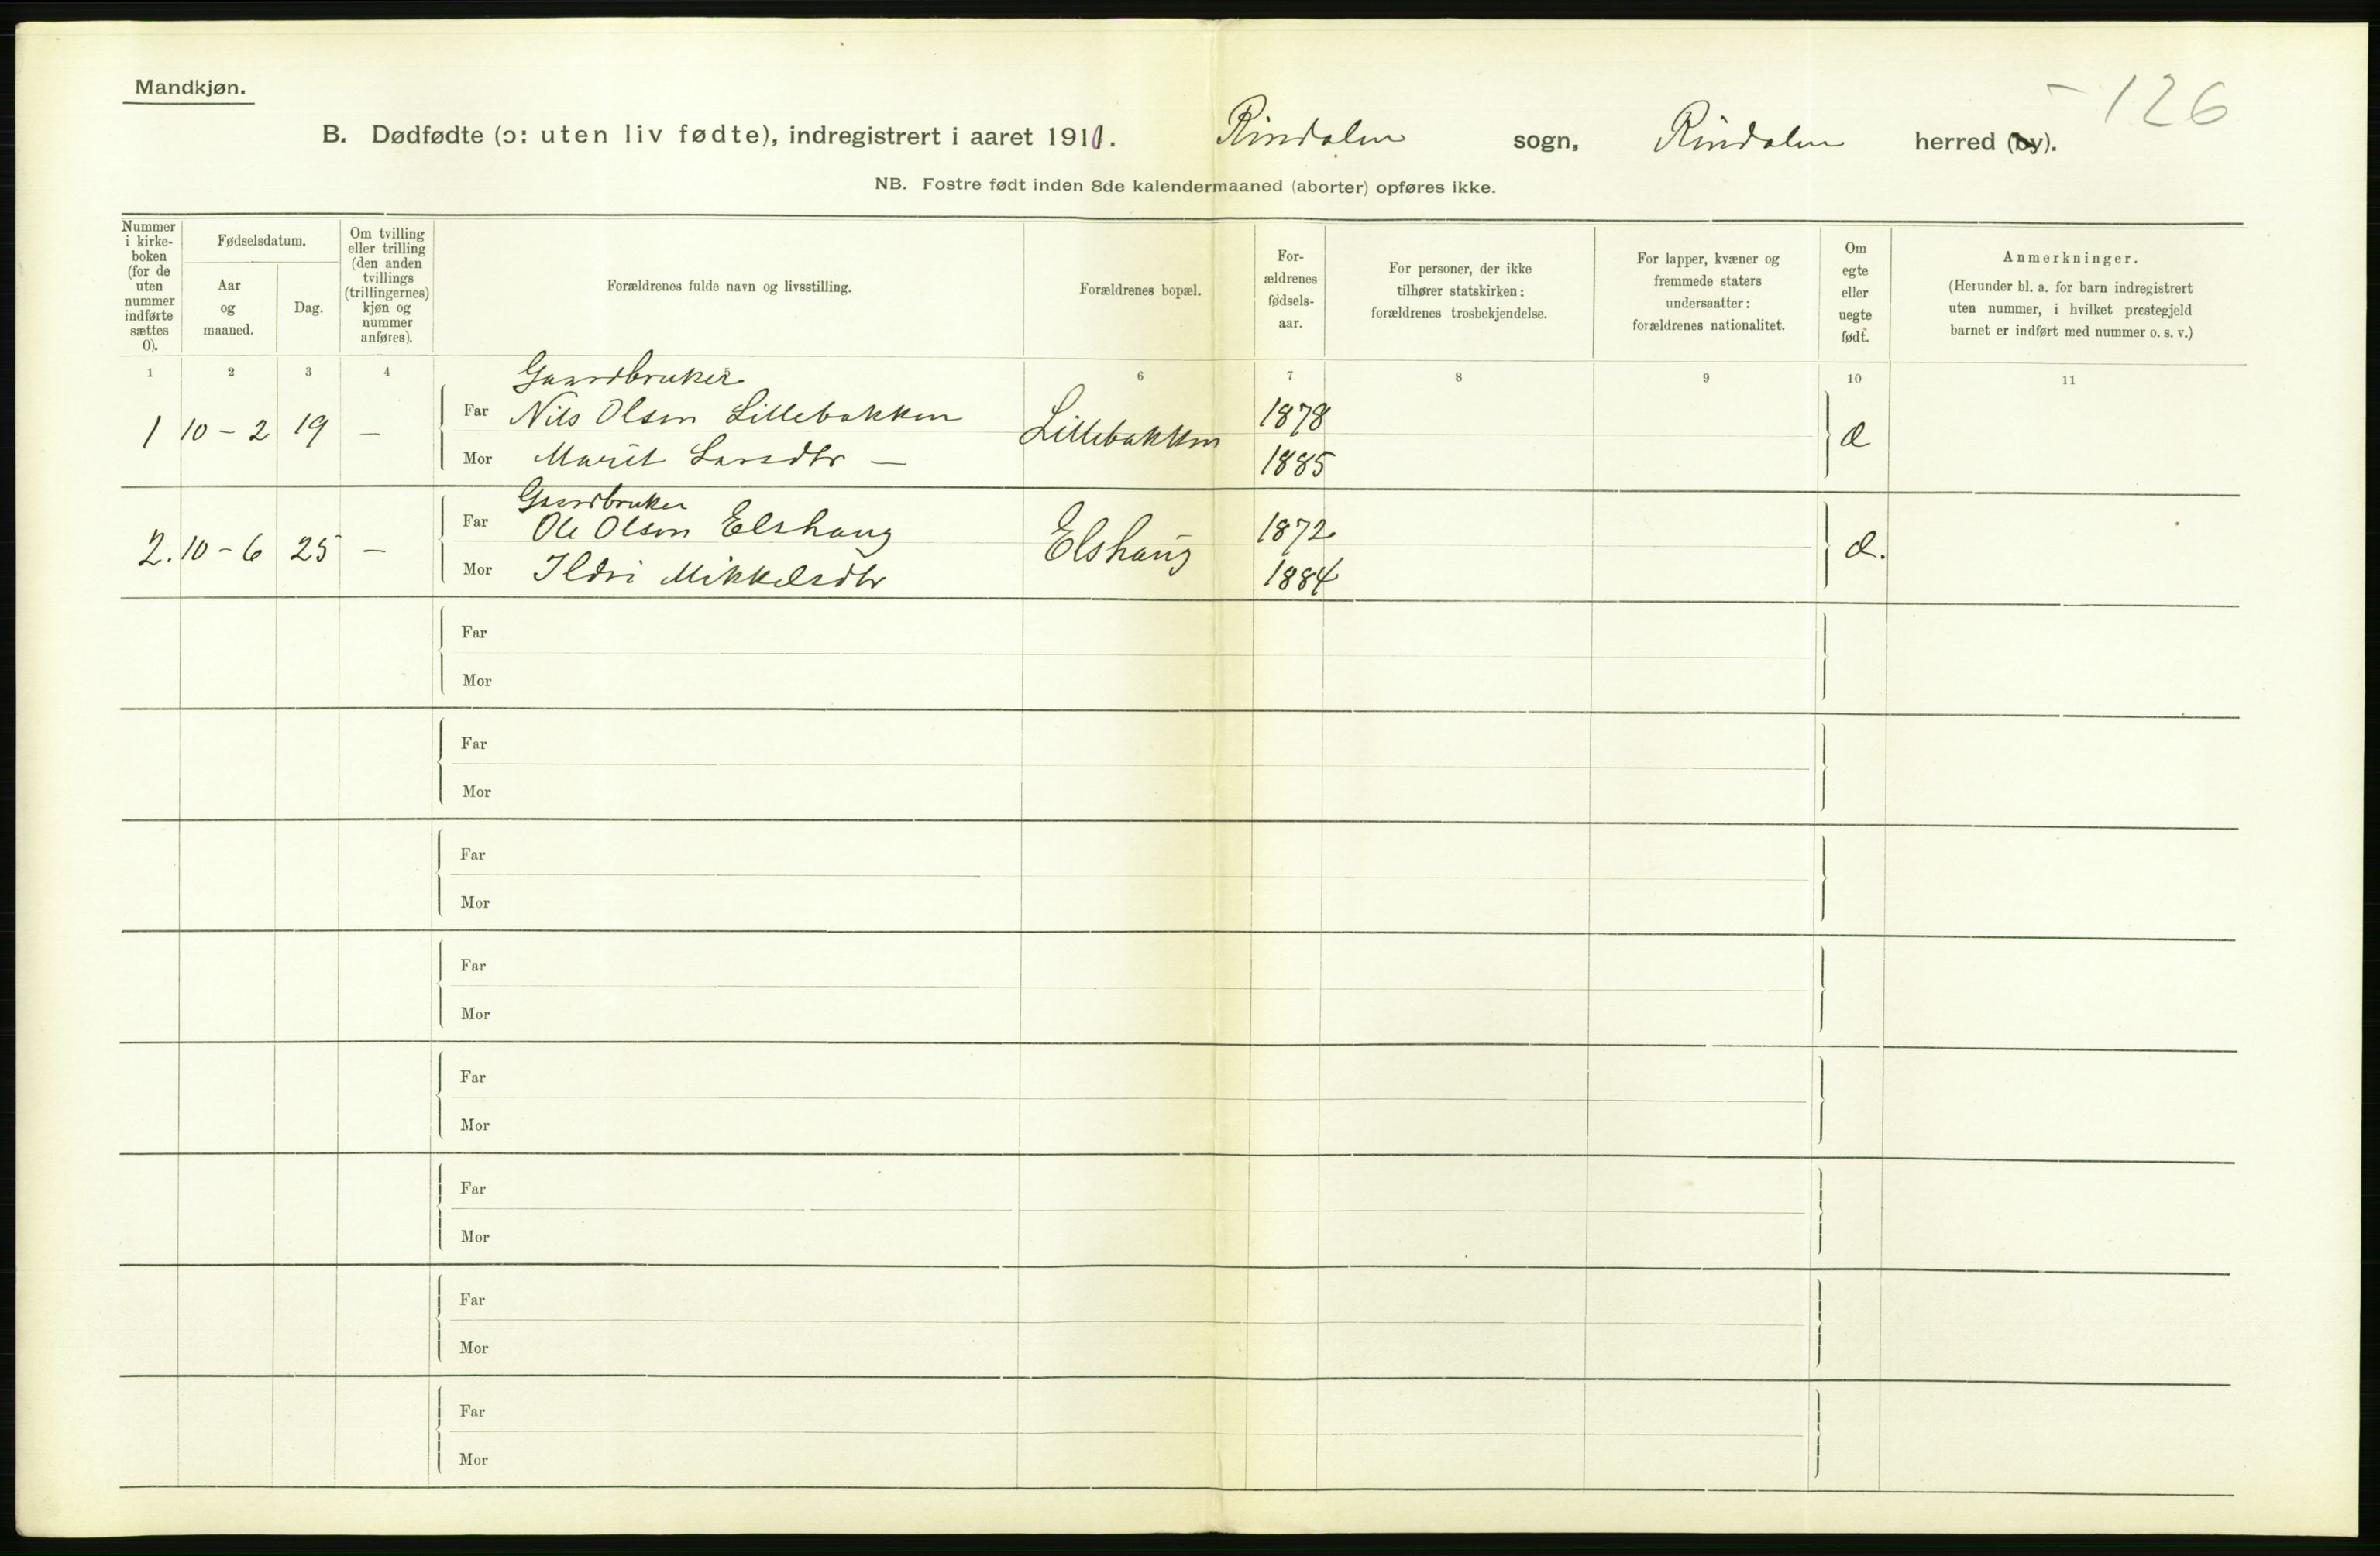 Mandkjøn.
- 126
B. Dødfødte (ɔ: uten liv fødte), indregistrert i aaret 1911. Rindalen sogn, Rindalen herred (by).
NB. Fostre født inden 8de kalendermaaned (aborter) opføres ikke.
Nummer i kirke-boken (for de uten nummer indførte sættes 0).
Fødselsdatum.
Aar og maaned.
Dag.
Om tvilling eller trilling (den anden tvillings (trillingernes) kjøn og nummer anføres).
Forældrenes fulde navn og livsstilling.
Forældrenes bopæl.
For-ældrenes fødsels-aar.
For personer, der ikke tilhører statskirken: forældrenes trosbekjendelse.
For lapper, kvæner og fremmede staters undersaatter: forældrenes nationalitet.
Om egte eller uegte født.
Anmerkninger.
(Herunder bl. a. for barn indregistrert uten nummer, i hvilket prestegjeld barnet er indført med nummer o. s. v.)
1 2 3 4 6 7 8 9 10 11
Gaardbruker
1 10-2 19 — Far Nils Olsen Lillebakken Lillebakken 1878 Æ
Mor Marit Larsdtr — 1885
Gaardbruker
2. 10-6 25 — Far Ole Olsen Elshaug Elshaug 1872 Æ.
Mor Ildri Mikkelsdtr 1884
Far
Mor
Far
Mor
Far
Mor
Far
Mor
Far
Mor
Far
Mor
Far
Mor
Far
Mor